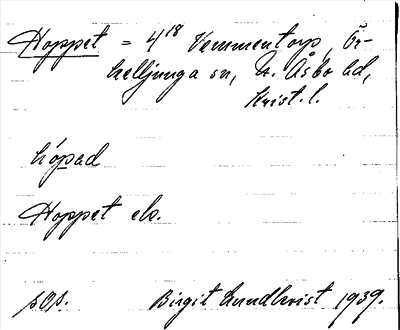 Hoppet = 4¹⁸ Vemmentorp, Ör-
kelljunga sn, N. Åsbo hd,
Krist. l.
hópad
Hoppet ek.
sOs. Birgit Lundkvist 1939.